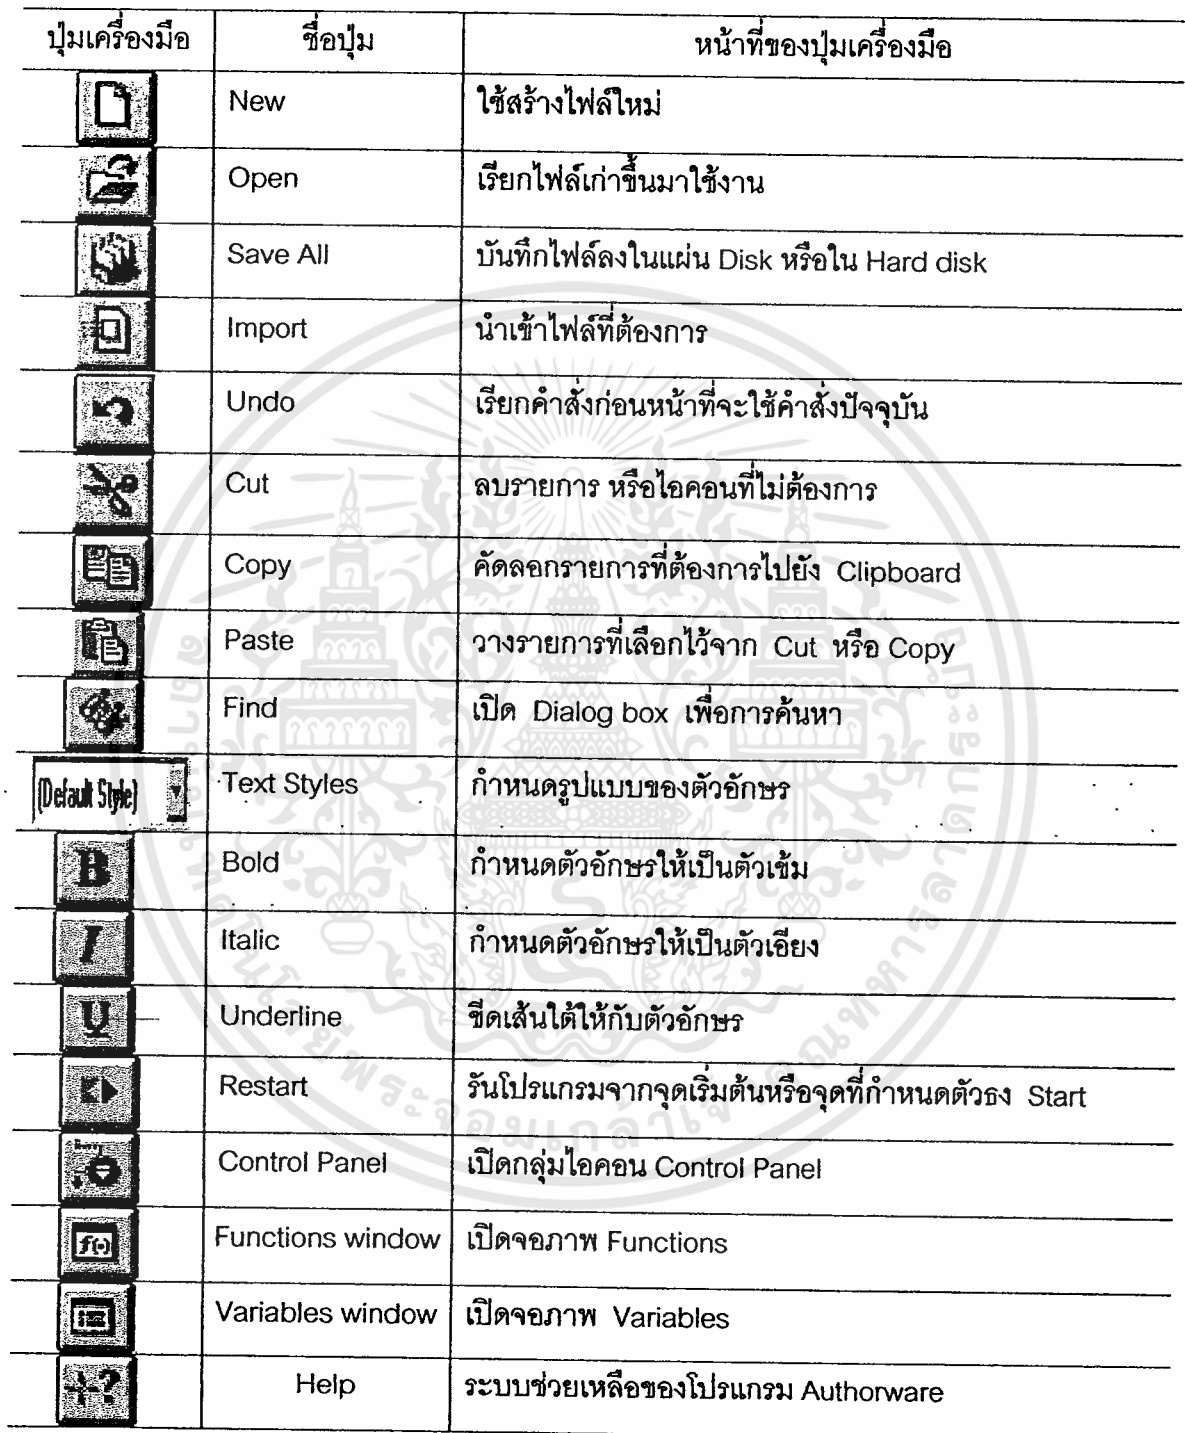 ปุ่มเครื่องมือ ชื่อปุ่ม หน้าที่ของปุ่มเครื่องมือ
New ใช้สร้างไฟล์ใหม่
Open เรียกไฟล์เก่าขึ้นมาใช้งาน
Save All บันทึกไฟล์ลงในแผ่น Disk หรือใน Hard disk
Import นำเข้าไฟล์ที่ต้องการ
Undo เรียกคำสั่งก่อนหน้าที่จะใช้คำสั่งปัจจุบัน
Cut ลบรายการ หรือไอคอนที่ไม่ต้องการ
Copy คัดลอกรายการที่ต้องการไปยัง Clipboard
Paste วางรายการที่เลือกไว้จาก Cut หรือ Copy
Find เปิด Dialog box เพื่อการค้นหา
(Default Style) Text Styles กำหนดรูปแบบของตัวอักษร
B Bold กำหนดตัวอักษรให้เป็นตัวเข้ม
I Italic กำหนดตัวอักษรให้เป็นตัวเอียง
U Underline ขีดเส้นใต้ให้กับตัวอักษร
Restart รันโปรแกรมจากจุดเริ่มต้นหรือจุดที่กำหนดตัวธง Start
Control Panel เปิดกลุ่มไอคอน Control Panel
f(·) Functions window เปิดจอภาพ Functions
Variables window เปิดจอภาพ Variables
? Help ระบบช่วยเหลือของโปรแกรม Authorware